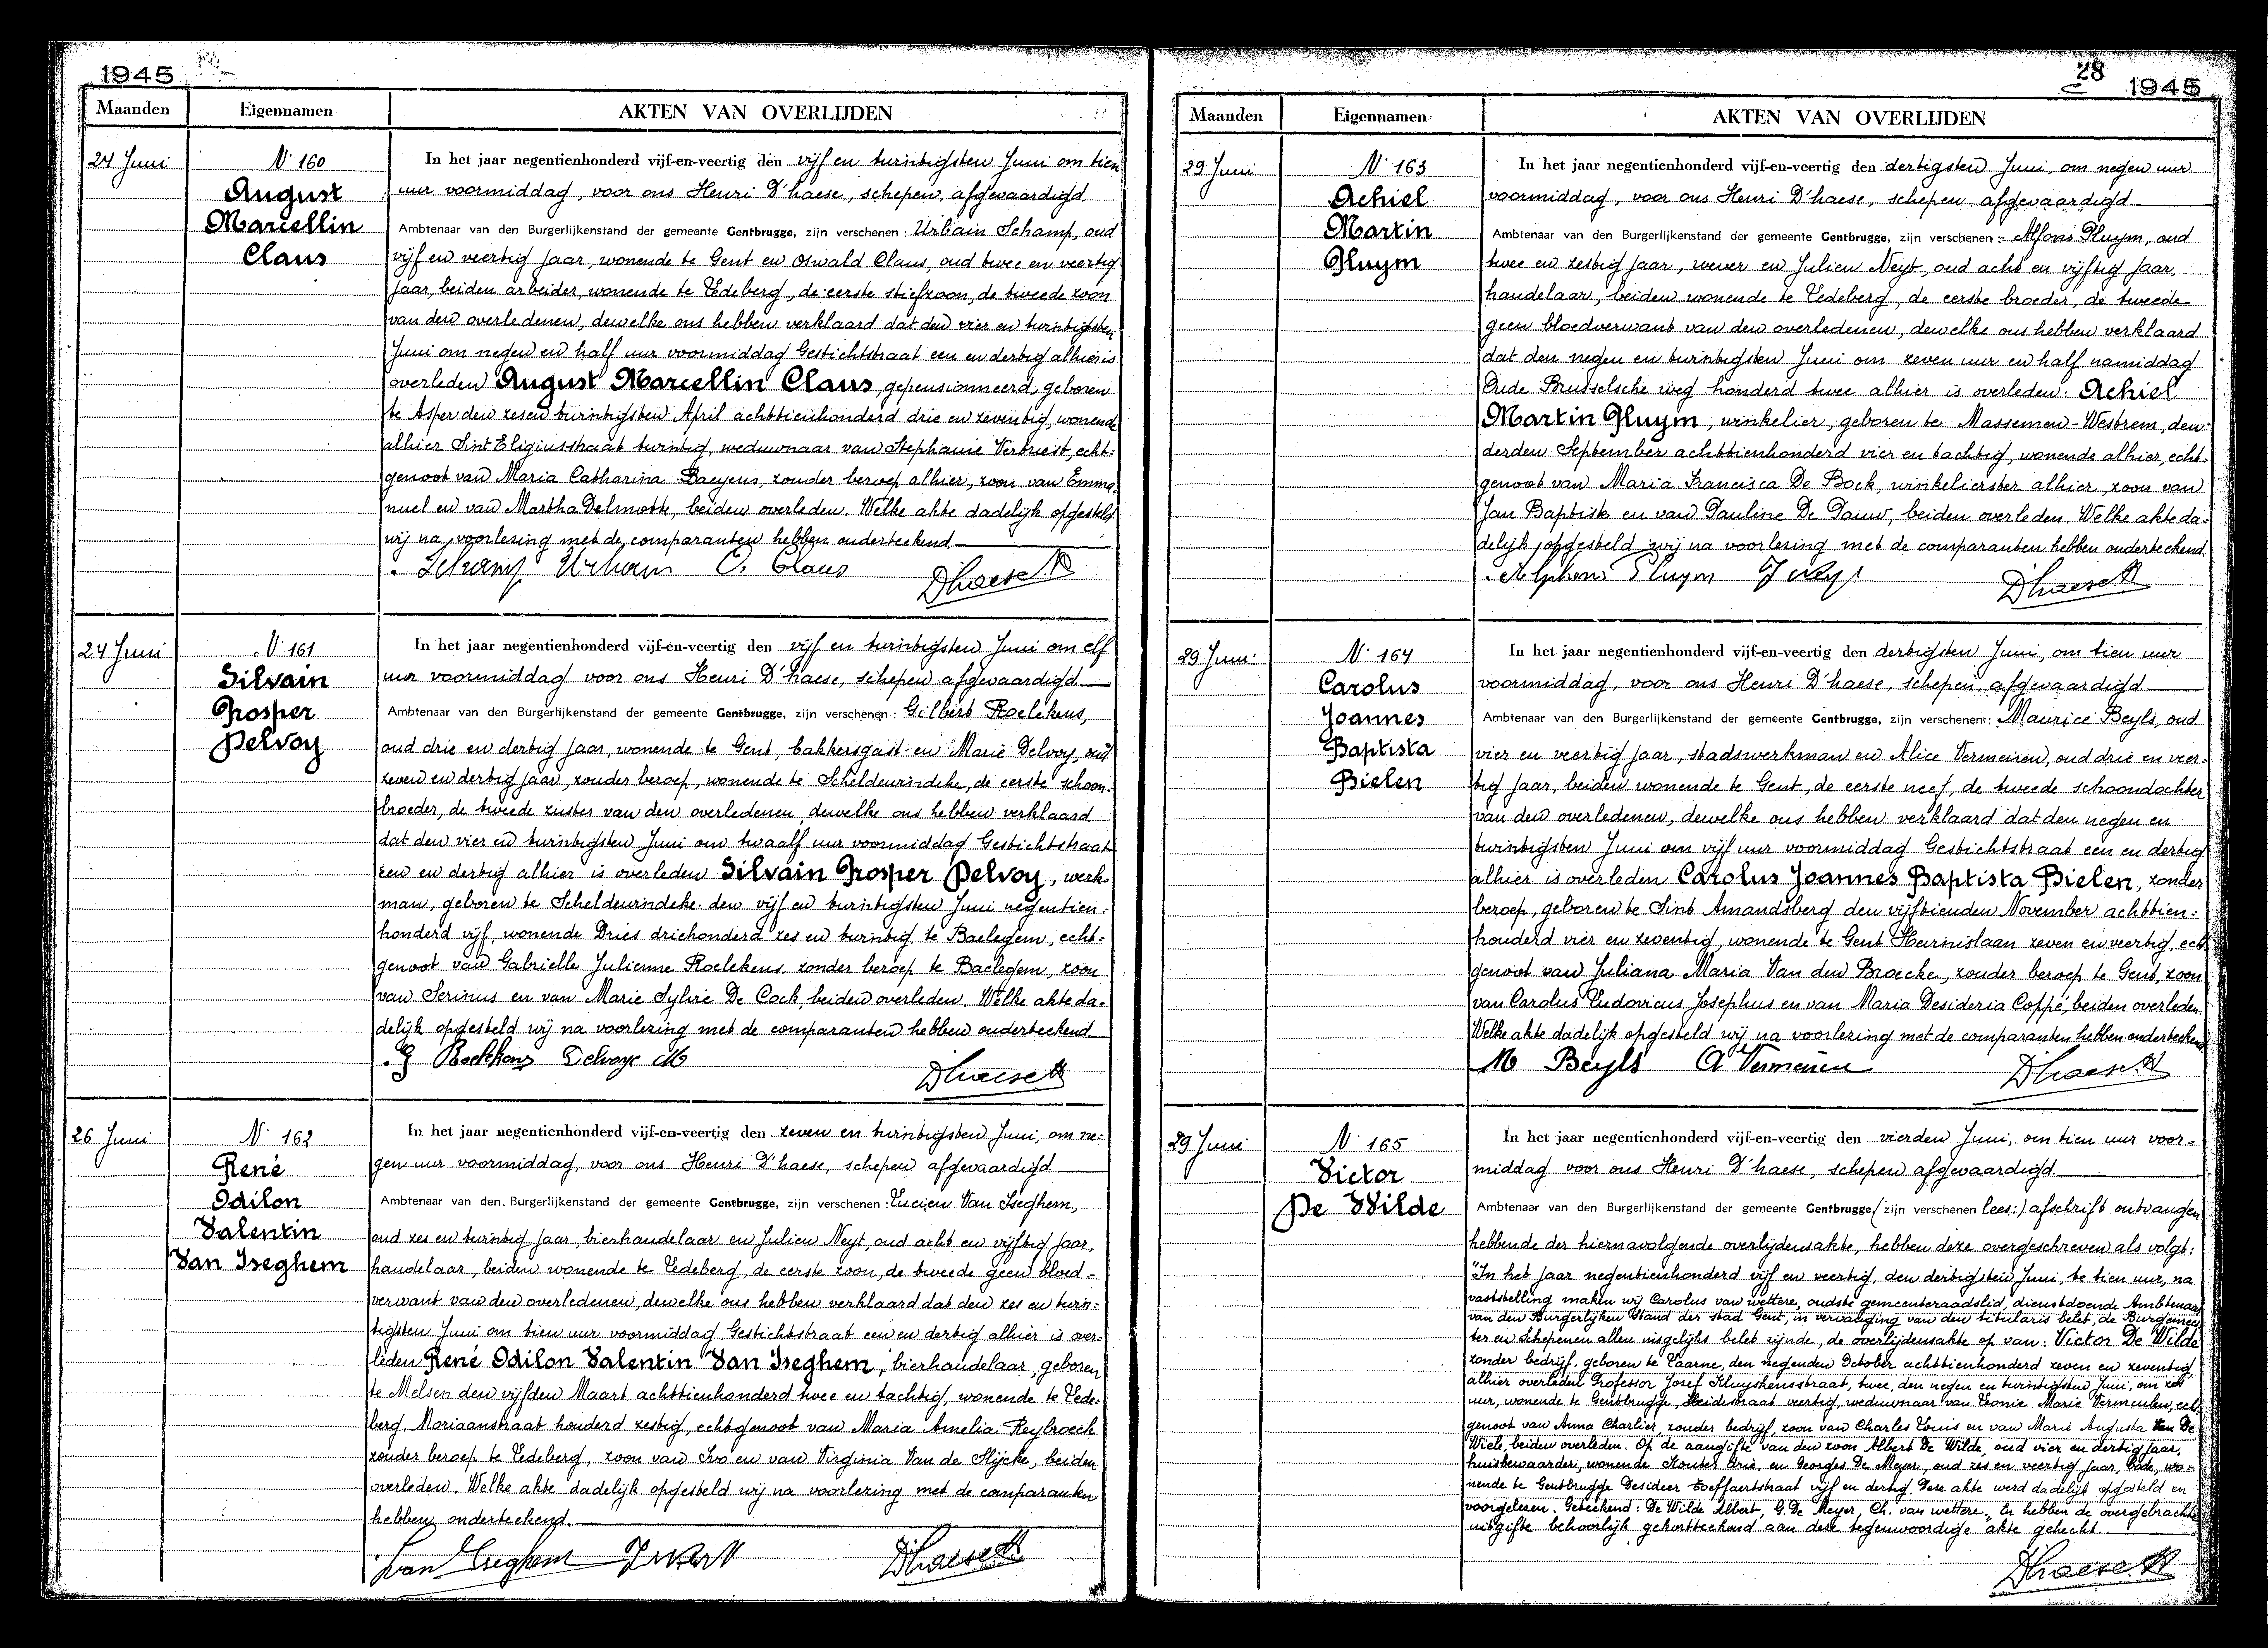 1945
Maanden Eigennamen AKTEN VAN OVERLIJDEN
24 Juni
N° 160
August
Marcellin
Claus
In het jaar negentienhonderd vijf-en-veertig den vijf en twintigsten Juni om tien
uur voormiddag, voor ons Henri D'haese, schepen, afgevaardigd
Ambtenaar van den Burgerlijkenstand der gemeente Gentbrugge, zijn verschenen: Urbain Schamp, oud
vijf en veertig jaar, wonende te Gent en Oswald Claus, oud twee en veertig
jaar, beiden arbeider, wonende te Ledeberg, de eerste stiefzoon, de tweede zoon
van den overledenen, dewelke ons hebben verklaard dat den vier en twintigsten
Juni om negen en half uur voormiddag Gestichtstraat een en dertig alhier is
overleden August Marcellin Claus gepensionneerd, geboren
te Asper den zesen twintigsten April achttienhonderd drie en zeventig, wonende
alhier Sint Eligiusstraat twintig, weduwnaar van Stephanie Verbriest, echt-
genoot van Maria Catharina Baeyens, zonder beroep alhier, zoon van Emma-
nuel en van Martha Delmotte, beiden overleden. Welke akte dadelijk opgesteld
wij na voorlezing met de comparanten hebben onderteekend.
Schamp Urbain O. Claus D'haese H
24 Juni
N° 161
Silvain
Prosper
Delvoy
In het jaar negentienhonderd vijf-en-veertig den vijf en twintigsten Juni om elf
uur voormiddag voor ons Henri D'haese, schepen afgevaardigd
Ambtenaar van den Burgerlijkenstand der gemeente Gentbrugge, zijn verschenen: Gilbert Roelekens,
oud drie en dertig jaar, wonende te Gent, bakkersgast en Marie Delvoy, oud
zeven en dertig jaar, zonder beroep, wonende te Scheldewindeke, de eerste schoon-
broeder, de tweede zuster van den overledenen, dewelke ons hebben verklaard
dat den vier en twintigsten Juni om twaalf uur voormiddag Gestichtstraat
een en dertig alhier is overleden Silvain Prosper Delvoy, werk-
man, geboren te Scheldewindeke den vijf en twintigsten Juni negentien-
honderd vijf, wonende Dries driehonderd zes en twintig te Baelegem, echt-
genoot van Gabrielle Julienne Roelekens, zonder beroep te Baelegem, zoon
van Serinus en van Marie Sylvie De Cock, beiden overleden. Welke akte da-
delijk opgesteld wij na voorlezing met de comparanten hebben onderteekend
G Roelekens Delvoye M D'haese H
26 Juni
N° 162
René
Odilon
Valentin
Van Iseghem
In het jaar negentienhonderd vijf-en-veertig den zeven en twintigsten Juni, om ne-
gen uur voormiddag, voor ons Henri D'haese, schepen afgevaardigd
Ambtenaar van den Burgerlijkenstand der gemeente Gentbrugge, zijn verschenen: Lucien Van Iseghem,
oud zes en twintig jaar, bierhandelaar en Julien Neyt, oud acht en vijftig jaar,
handelaar, beiden wonende te Ledeberg, de eerste zoon, de tweede geen bloed-
verwant van den overledenen, dewelke ons hebben verklaard dat den zes en twin-
tigsten Juni om tien uur voormiddag, Gestichtstraat een en dertig alhier is over-
leden René Odilon Valentin Van Iseghem, bierhandelaar, geboren
te Melsen den vijfden Maart achttienhonderd twee en tachtig, wonende te Lede-
berg, Moriaanstraat honderd zestig, echtgenoot van Maria Amelia Reybroeck
zonder beroep te Ledeberg, zoon van Ivo en van Virginia Van de Slijcke, beiden
overleden. Welke akte dadelijk opgesteld wij na voorlezing met de comparanten
hebben onderteekend.
Van Iseghem D'haese H
28
1945
Maanden Eigennamen AKTEN VAN OVERLIJDEN
29 Juni
N° 163
Achiel
Martin
Pluym
In het jaar negentienhonderd vijf-en-veertig den dertigsten Juni, om negen uur
voormiddag, voor ons Henri D'haese, schepen, afgevaardigd
Ambtenaar van den Burgerlijkenstand der gemeente Gentbrugge, zijn verschenen: Alfons Pluym, oud
twee en zestig jaar, wever en Julien Neyt, oud acht en vijftig jaar,
handelaar, beiden wonende te Ledeberg, de eerste broeder, de tweede
geen bloedverwant van den overledenen, dewelke ons hebben verklaard
dat den negen en twintigsten Juni om zeven uur en half namiddag
Oude Brusselsche weg honderd twee alhier is overleden: Achiel
Martin Pluym, winkelier, geboren te Massemen-Westrem, den
derden September achttienhonderd vier en tachtig, wonende alhier, echt-
genoot van Maria Francisca De Bock, winkelierster alhier, zoon van
Jan Baptist en van Pauline De Pauw, beiden overleden. Welke akte da-
delijk opgesteld wij na voorlezing met de comparanten hebben onderteekend.
Alphons Pluym J Neyt D'haese H
29 Juni
N° 164
Carolus
Joannes
Baptista
Bielen
In het jaar negentienhonderd vijf-en-veertig den dertigsten Juni, om tien uur
voormiddag, voor ons Henri D'haese, schepen, afgevaardigd
Ambtenaar van den Burgerlijkenstand der gemeente Gentbrugge, zijn verschenen: Maurice Beyls, oud
vier en veertig jaar, stadswerkman en Alice Vermeiren, oud drie en veer-
tig jaar, beiden wonende te Gent, de eerste neef, de tweede schoondochter
van den overledenen, dewelke ons hebben verklaard dat den negen en
twintigsten Juni om vijf uur voormiddag Gestichtstraat een en dertig
alhier is overleden Carolus Joannes Baptista Bielen, zonder
beroep, geboren te Sint Amandsberg den vijftienden November achttien-
honderd vier en zeventig, wonende te Gent Heirnislaan zeven en veertig, echt-
genoot van Juliana Maria Van den Broecke, zonder beroep te Gent, zoon
van Carolus Ludovicus Josephus en van Maria Desideria Coppé, beiden overleden.
Welke akte dadelijk opgesteld wij na voorlezing met de comparanten hebben onderteekend.
M Beyls A Vermeiren D'haese H
29 Juni
N° 165
Victor
De Wilde
In het jaar negentienhonderd vijf-en-veertig den vierden Juni, om tien uur voor-
middag voor ons Henri D'haese, schepen afgevaardigd
Ambtenaar van den Burgerlijkenstand der gemeente Gentbrugge (zijn verschenen lees:) afschrift ontvangen
hebbende der hiernavolgende overlijdensakte, hebben deze overgeschreven als volgt:
"In het jaar negentienhonderd vijf en veertig, den dertigsten Juni, te tien uur, na
vaststelling maken wij Carolus van wettere, oudste gemeenteraadslid, dienstdoende Ambtenaar
van den Burgerlijken Stand der stad Gent, in vervanging van den titularis belet, de Burgemees-
ter en Schepenen allen insgelijks belet zijnde, de overlijdensakte op van: Victor De Wilde
zonder bedrijf, geboren te Laarne, den negenden October achttienhonderd zeven en zeventig,
alhier overleden Professor Josef Kluyskensstraat, twee, den negen en twintigsten Juni, om zes
uur, wonende te Gentbrugge, Heidestraat veertig, weduwnaar van Leonie Marie Vermeulen, echt-
genoot van Anna Charlier, zonder bedrijf, zoon van Charles Louis en van Marie Augusta Van De
Wiele, beiden overleden. Op de aangifte van den zoon Albert De Wilde, oud vier en dertig jaar,
huisbewaarder, wonende Kouter drie, en Georges De Meyer, oud zes en veertig jaar, bode, wo-
nende te Gentbrugge Desideer Toeffaertstraat vijf en dertig. Deze akte werd dadelijk opgesteld en
voorgelezen. Geteekend: De Wilde Albert, G. De Meyer, Ch. van wettere." En hebben de overgebrachte
uitgifte behoorlijk gekortteekend aan deze tegenwoordige akte gehecht.
D'haese H